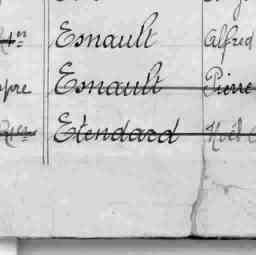 Esnault Alfred
Esnault Pierre
Etendard Noël